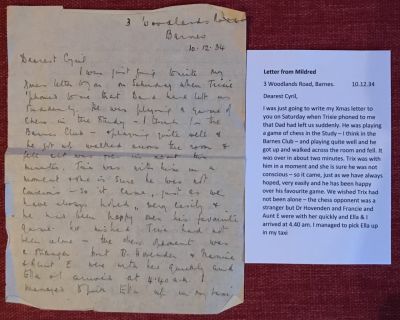 3 Woodlands Road
Barnes
10.12.34
Dearest Cyril,
I was just going to write my
Xmas letter to you on Saturday when Trixie
'phoned to me that Dad had left us
suddenly. He was playing a game of
chess in the Study – I think in the
Barnes Club – & playing quite well &
he got up walked across the room &
fell all was over in about two
minutes. Trix was with him in a
moment & she is sure he was not
conscious – so it came, just as we
have always hoped, very easily &
he has been happy over his favourite
game. We wished Trix had not
been alone – the chess opponent was
a stranger but Dr Hovenden & Francie
& Aunt E were with her quickly and
Ella & I arrived at 4.40 a.m. I
managed to pick Ella up in my taxi
Letter from Mildred
3 Woodlands Road, Barnes. 10.12.34
Dearest Cyril,
I was just going to write my Xmas letter to
you on Saturday when Trixie phoned to me
that Dad had left us suddenly. He was playing
a game of chess in the Study – I think in the
Barnes Club – and playing quite well and he
got up and walked across the room and fell. It
was over in about two minutes. Trix was with
him in a moment and she is sure he was not
conscious – so it came, just as we have always
hoped, very easily and he has been happy
over his favourite game. We wished Trix had
not been alone – the chess opponent was a
stranger but Dr Hovenden and Francie and
Aunt E were with her quickly and Ella & I
arrived at 4.40 am. I managed to pick Ella up
in my taxi